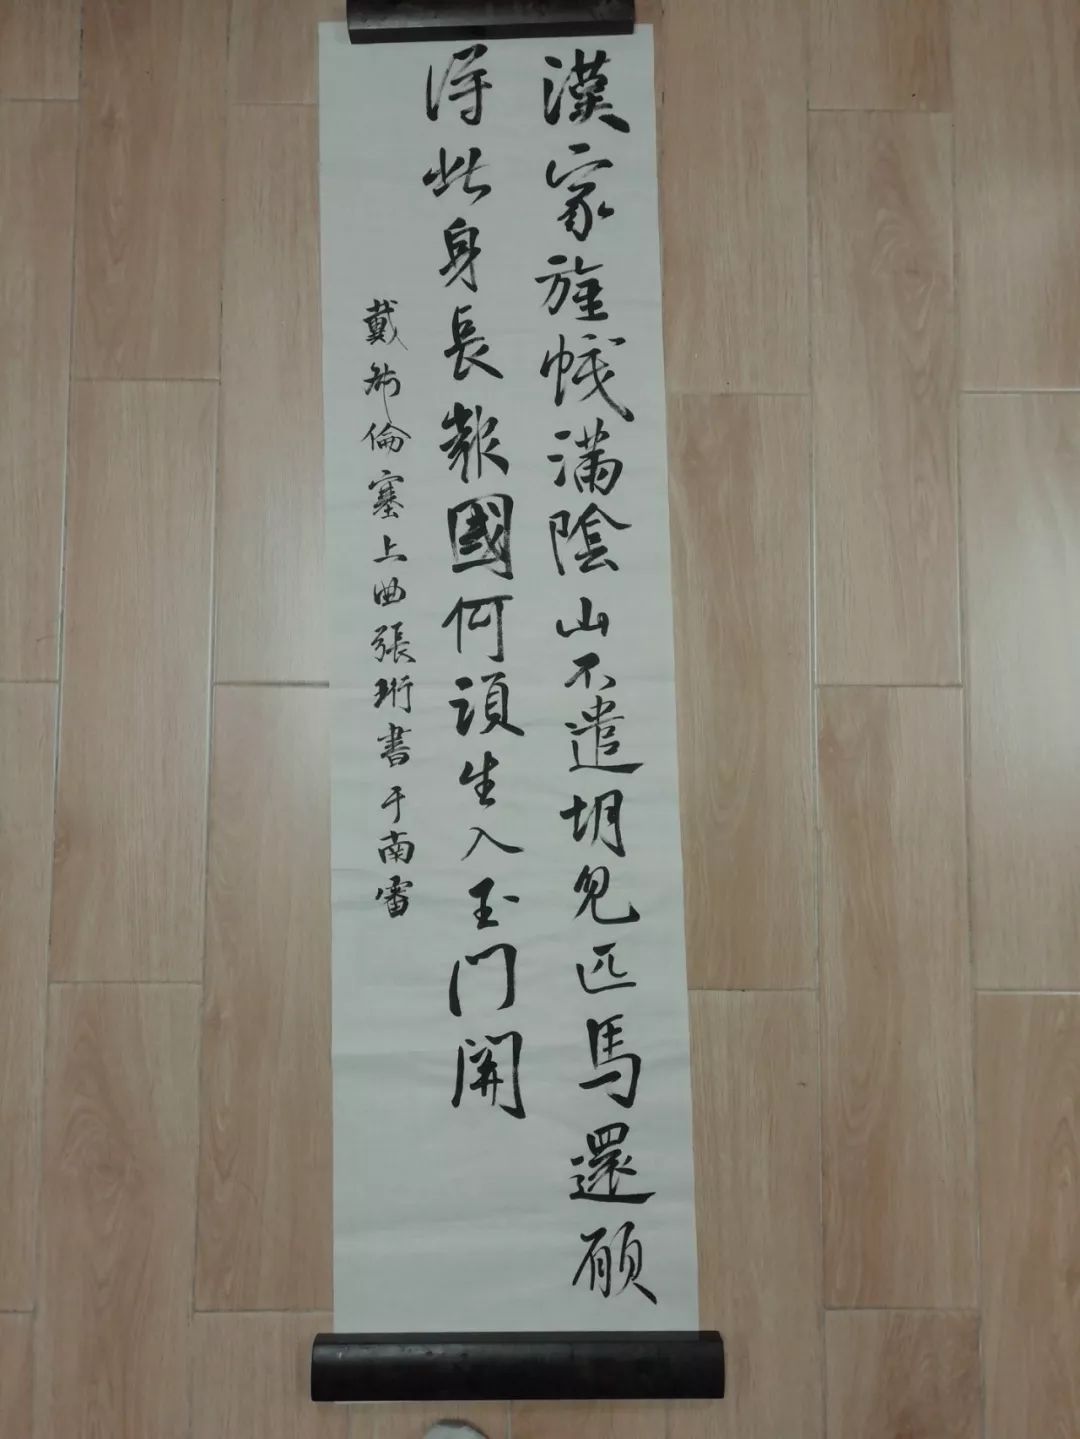 漢家旌幟滿陰山不遣胡兒匹馬還願
得此身長報國何須生入玉門關
戴叔倫塞上曲張珩書于南窗